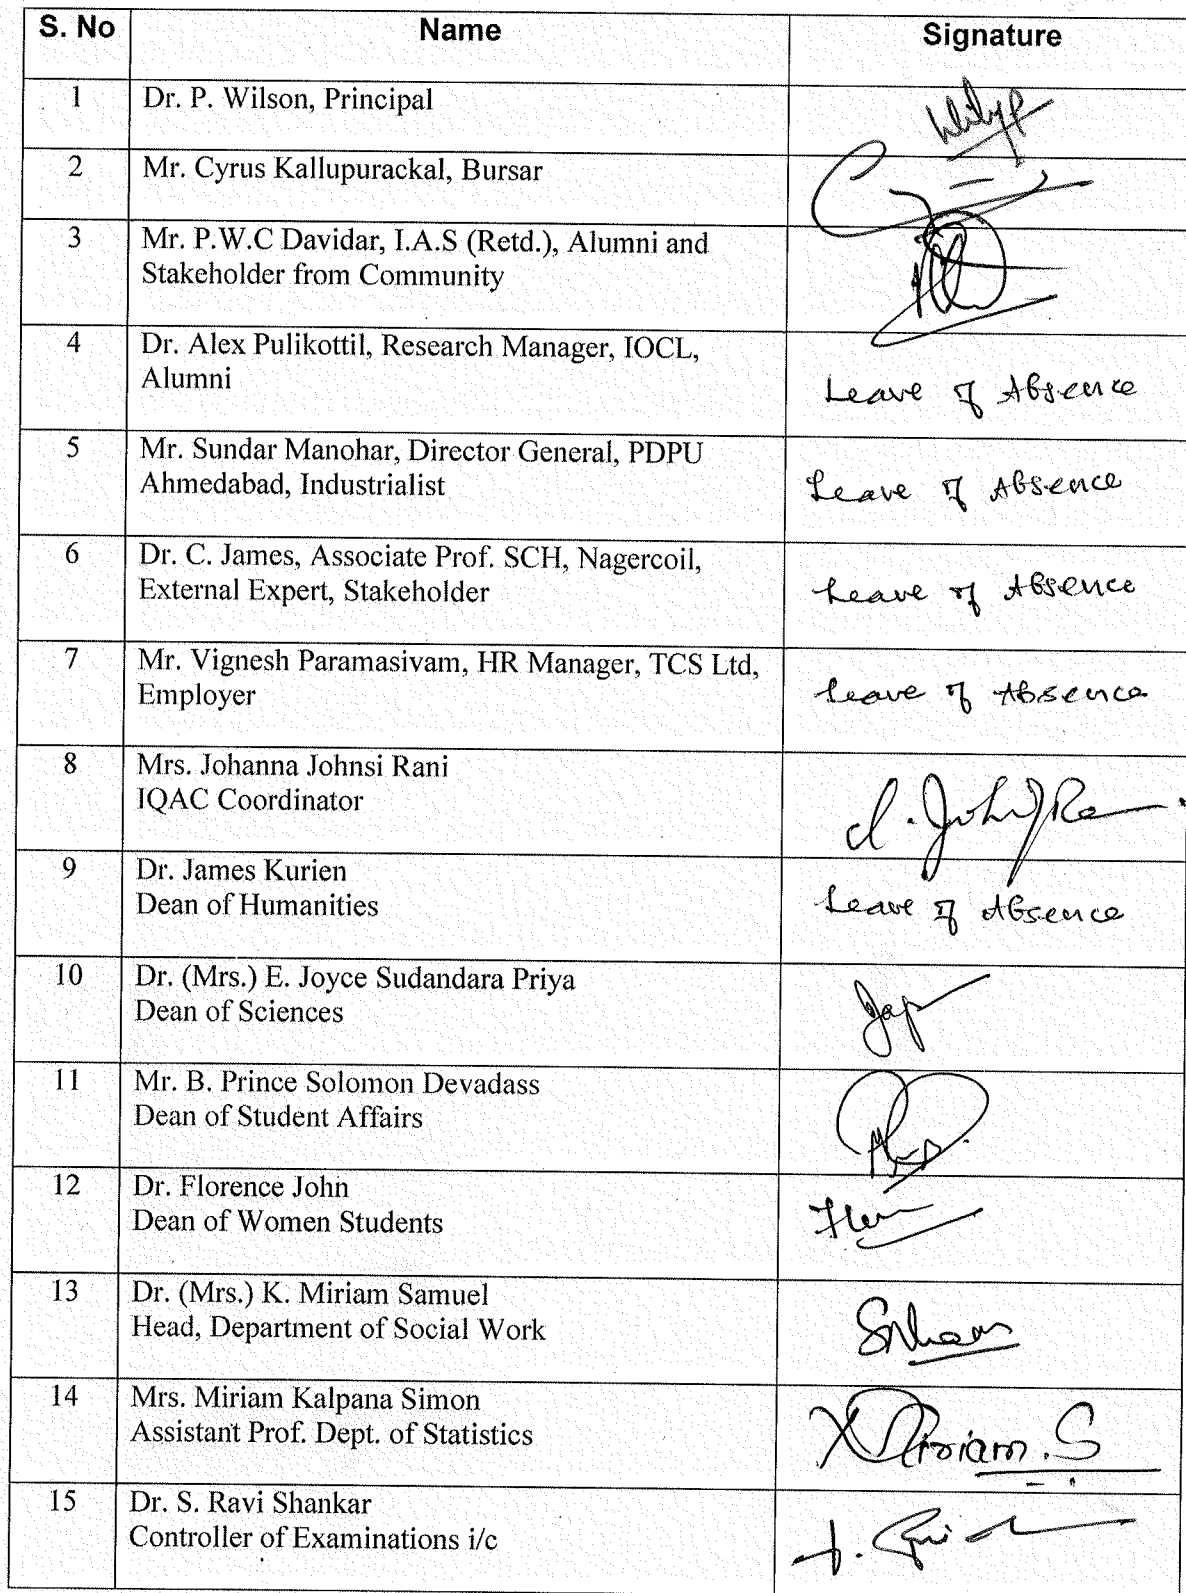 S. No Name Signature
1 Dr. P. Wilson, Principal
2 Mr. Cyrus Kallupurackal, Bursar
3 Mr. P.W.C Davidar, I.A.S (Retd.), Alumni and
Stakeholder from Community
4 Dr. Alex Pulikottil, Research Manager, IOCL,
Alumni
Leave of Absence
5 Mr. Sundar Manohar, Director General, PDPU
Ahmedabad, Industrialist
Leave of Absence
6 Dr. C. James, Associate Prof. SCH, Nagercoil,
External Expert, Stakeholder
Leave of Absence
7 Mr. Vignesh Paramasivam, HR Manager, TCS Ltd,
Employer
Leave of Absence
8 Mrs. Johanna Johnsi Rani
IQAC Coordinator
9 Dr. James Kurien
Dean of Humanities
Leave of Absence
10 Dr. (Mrs.) E. Joyce Sudandara Priya
Dean of Sciences
11 Mr. B. Prince Solomon Devadass
Dean of Student Affairs
12 Dr. Florence John
Dean of Women Students
13 Dr. (Mrs.) K. Miriam Samuel
Head, Department of Social Work
14 Mrs. Miriam Kalpana Simon
Assistant Prof. Dept. of Statistics
Miriam.S
15 Dr. S. Ravi Shankar
Controller of Examinations i/c